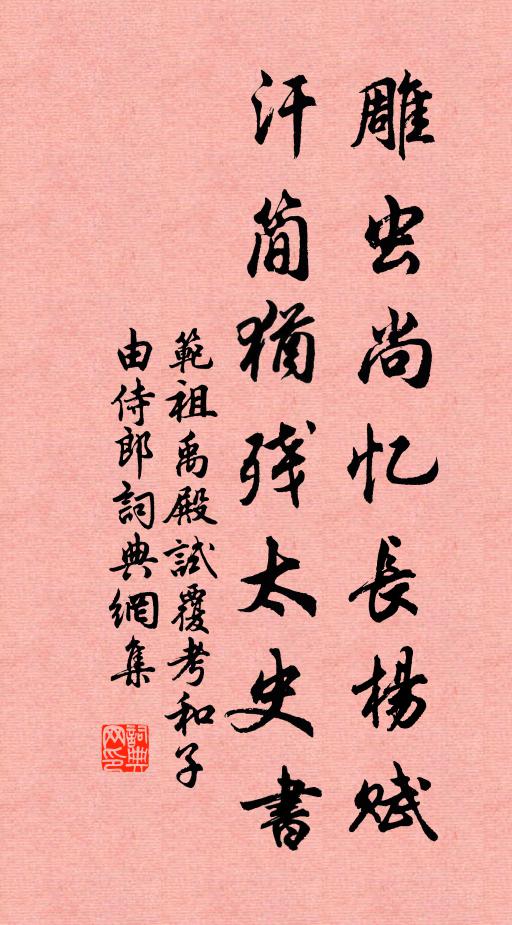 雕虫尚忆長楊赋
汗简猶残太史書
範祖禹殿試覆考和子
由侍郎詞典網集
詞典网印